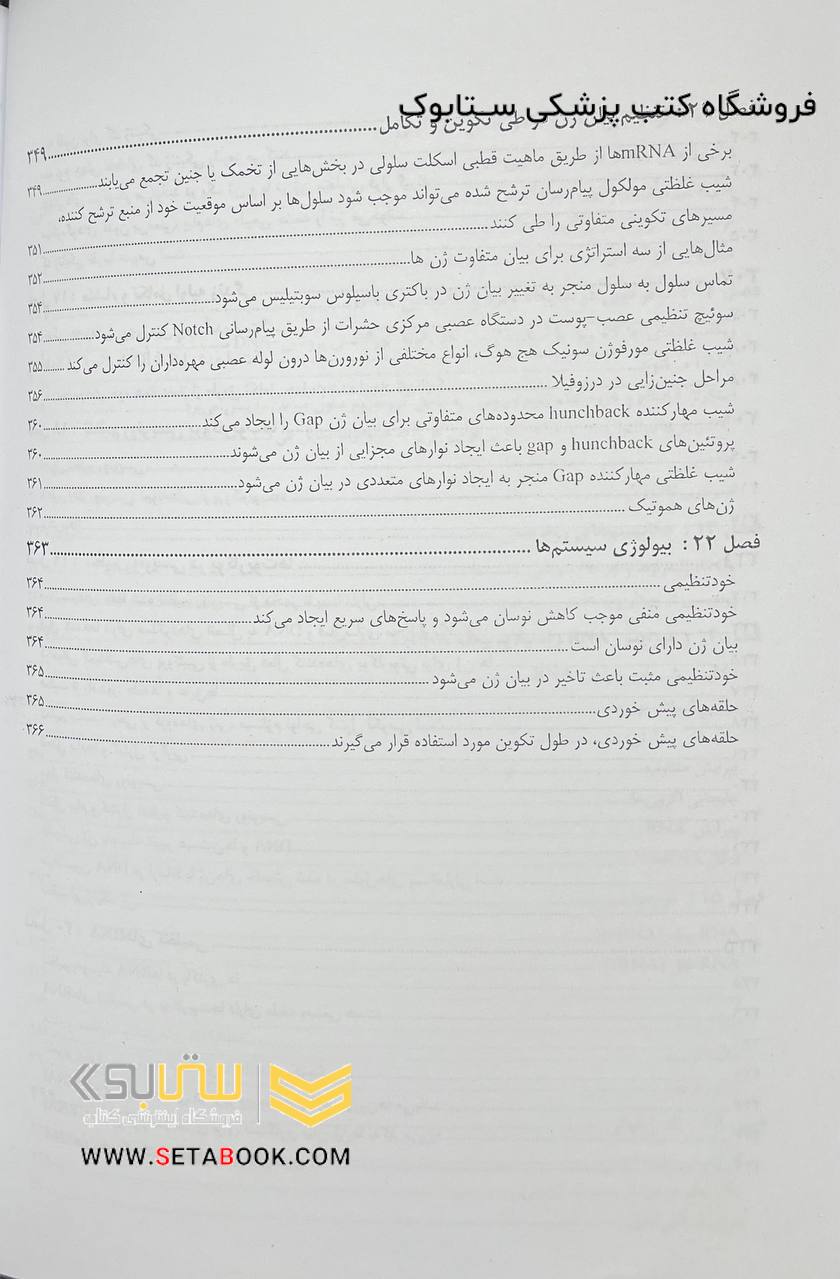 فروشگاه کتب پزشکی ستابوک
فصل ۲ ژن در طی تکوین و تکامل ۳۴۹
برخی از mRNAها از طریق ماهیت قطبی اسکلت سلولی در بخش‌هایی از تخمک یا جنین تجمع می‌یابند ۳۴۹
شیب غلظتی مولکول پیام‌رسان ترشح شده می‌تواند موجب شود سلول‌ها بر اساس موقعیت خود از منبع ترشح کننده،
مسیرهای تکوینی متفاوتی را طی کنند ۳۵۱
مثال‌هایی از سه استراتژی برای بیان متفاوت ژن ها ۳۵۲
تماس سلول به سلول منجر به تغییر بیان ژن در باکتری باسیلوس سوبتیلیس می‌شود ۳۵۴
سوئیچ تنظیمی عصب-پوست در دستگاه عصبی مرکزی حشرات از طریق پیام‌رسانی Notch کنترل می‌شود ۳۵۴
شیب غلظتی مورفوژن سونیک هج هوگ، انواع مختلفی از نورورن‌ها درون لوله عصبی مهره‌داران را کنترل می‌کند ۳۵۵
مراحل جنین‌زایی در درزوفیلا ۳۵۶
شیب مهارکننده hunchback محدوده‌های متفاوتی برای بیان ژن Gap را ایجاد می‌کند ۳۶۰
پروتئین‌های hunchback و gap باعث ایجاد نوارهای مجزایی از بیان ژن می‌شوند ۳۶۰
شیب غلظتی مهارکننده Gap منجر به ایجاد نوارهای متعددی در بیان ژن می‌شود ۳۶۱
ژن‌های هموتیک ۳۶۲
فصل ۲۲ : بیولوژی سیستم‌ها ۳۶۳
خودتنظیمی ۳۶۴
خودتنظیمی منفی موجب کاهش نوسان می‌شود و پاسخ‌های سریع ایجاد می‌کند ۳۶۴
بیان ژن دارای نوسان است ۳۶۴
خودتنظیمی مثبت باعث تاخیر در بیان ژن می‌شود ۳۶۵
حلقه‌های پیش خوردی ۳۶۵
حلقه‌های پیش خوردی، در طول تکوین مورد استفاده قرار می‌گیرند ۳۶۶
فروشگاه اینترنتی کتاب
WWW.SETABOOK.COM